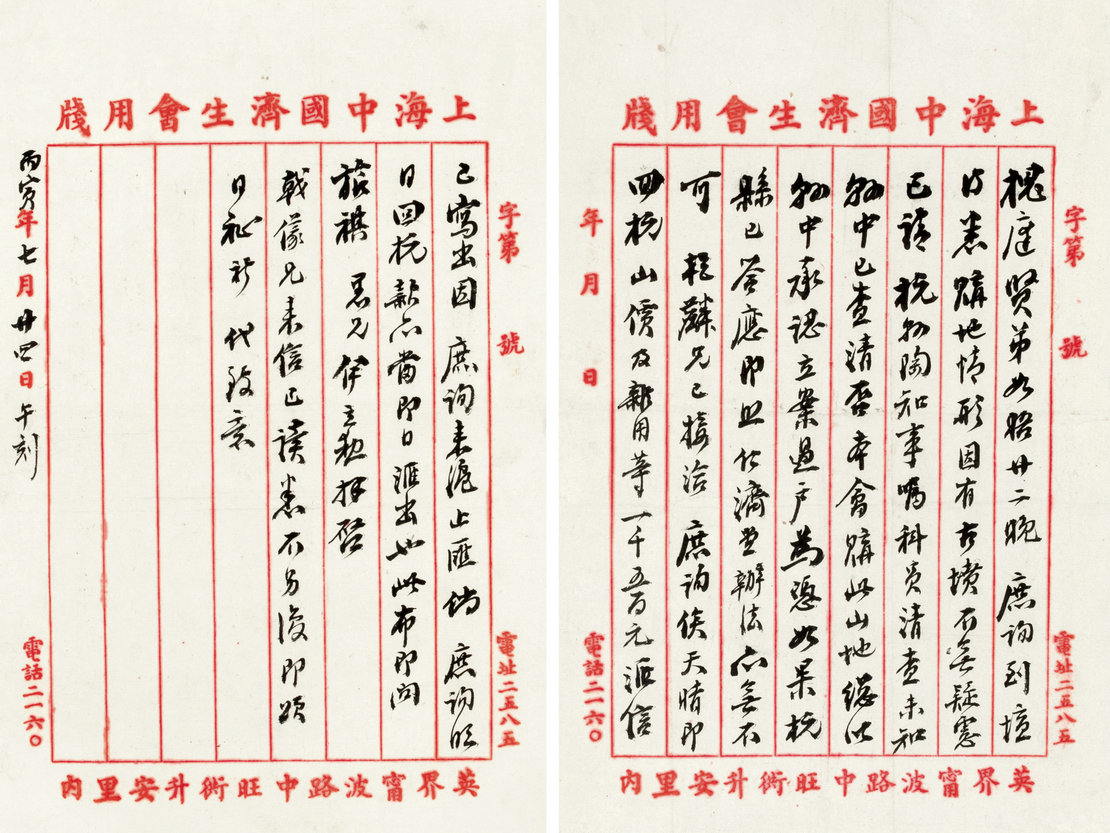 上海中國濟生會用牋
字第　號
電址二五八五
槐廷賢弟如晤廿二晚　庶詢到壇
得悉購地情形因有古墳不無疑竇
已請杭縣陶知事囑科員清查未知
縣中已查清否本會購此山地總以
縣中承認立案過戶為憑如果杭
縣已答應即照仁濟堂辦法亦無不
可　趾麟兄已接洽　庶詢俟天晴即
回杭山價及雜用等一千五百元滙信
年　月　日
電話二一六〇
英界甯波路中旺術升安里內
上海中國濟生會用牋
字第　號
電址二五八五
已寫出因　庶詢來滬止匯倘　庶詢明
日回杭款亦當即日滙出也此布即問
旅祺　愚兄　立勳拜啓
戟儀兄來信已讀悉不另復即頌
日祉祈　代致意
丙寅年七月廿四日午刻
電話二一六〇
英界甯波路中旺術升安里內